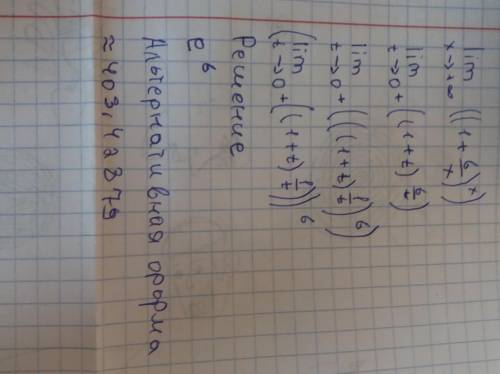 lim x→+∞ ((1+6/x)^x)
lim t→0+ ((1+t)^(6/t))
lim t→0+ (((1+t)^(1/t))^6)
(lim t→0+ ((1+t)^(1/t)))^6
Решение
e^6
Альтернативная форма
≈ 403,42879